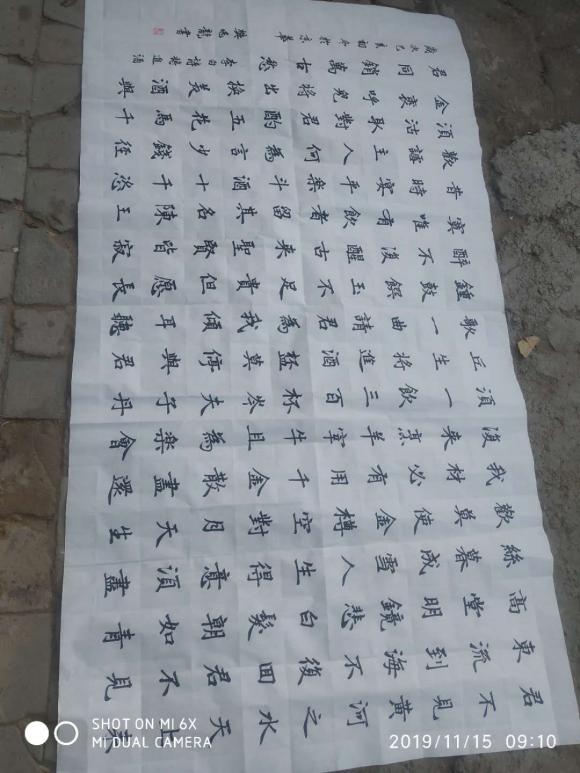 君不見黃河之水天上來
東流到海不復回君不見
高堂明鏡悲白髮朝如青
絲暮成雪人生得意須盡
歡莫使金樽空對月天生
我材必有用千金散盡還
復來烹羊宰牛且為樂會
須一飲三百杯岑夫子丹
丘生將進酒盃莫停與君
歌一曲請君為我傾耳聽
鐘鼓饌玉不足貴但願長
醉不復醒古來聖賢皆寂
寞唯有飲者留其名陳王
昔時宴平樂斗酒十千恣
歡謔主人何為言少錢徑
須沽取對君酌五花馬千
金裘呼兒將出換美酒與
君同銷萬古愁李白詩將進酒
歲次己亥初冬於京華
龍書
SHOT ON MI 6X
MI DUAL CAMERA
2019/11/15 09:10